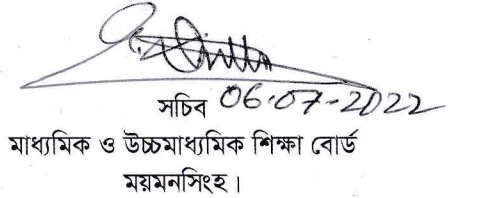 সচিব 06.07-2022
মাধ্যমিক ও উচ্চমাধ্যমিক শিক্ষা বোর্ড
ময়মনসিংহ।